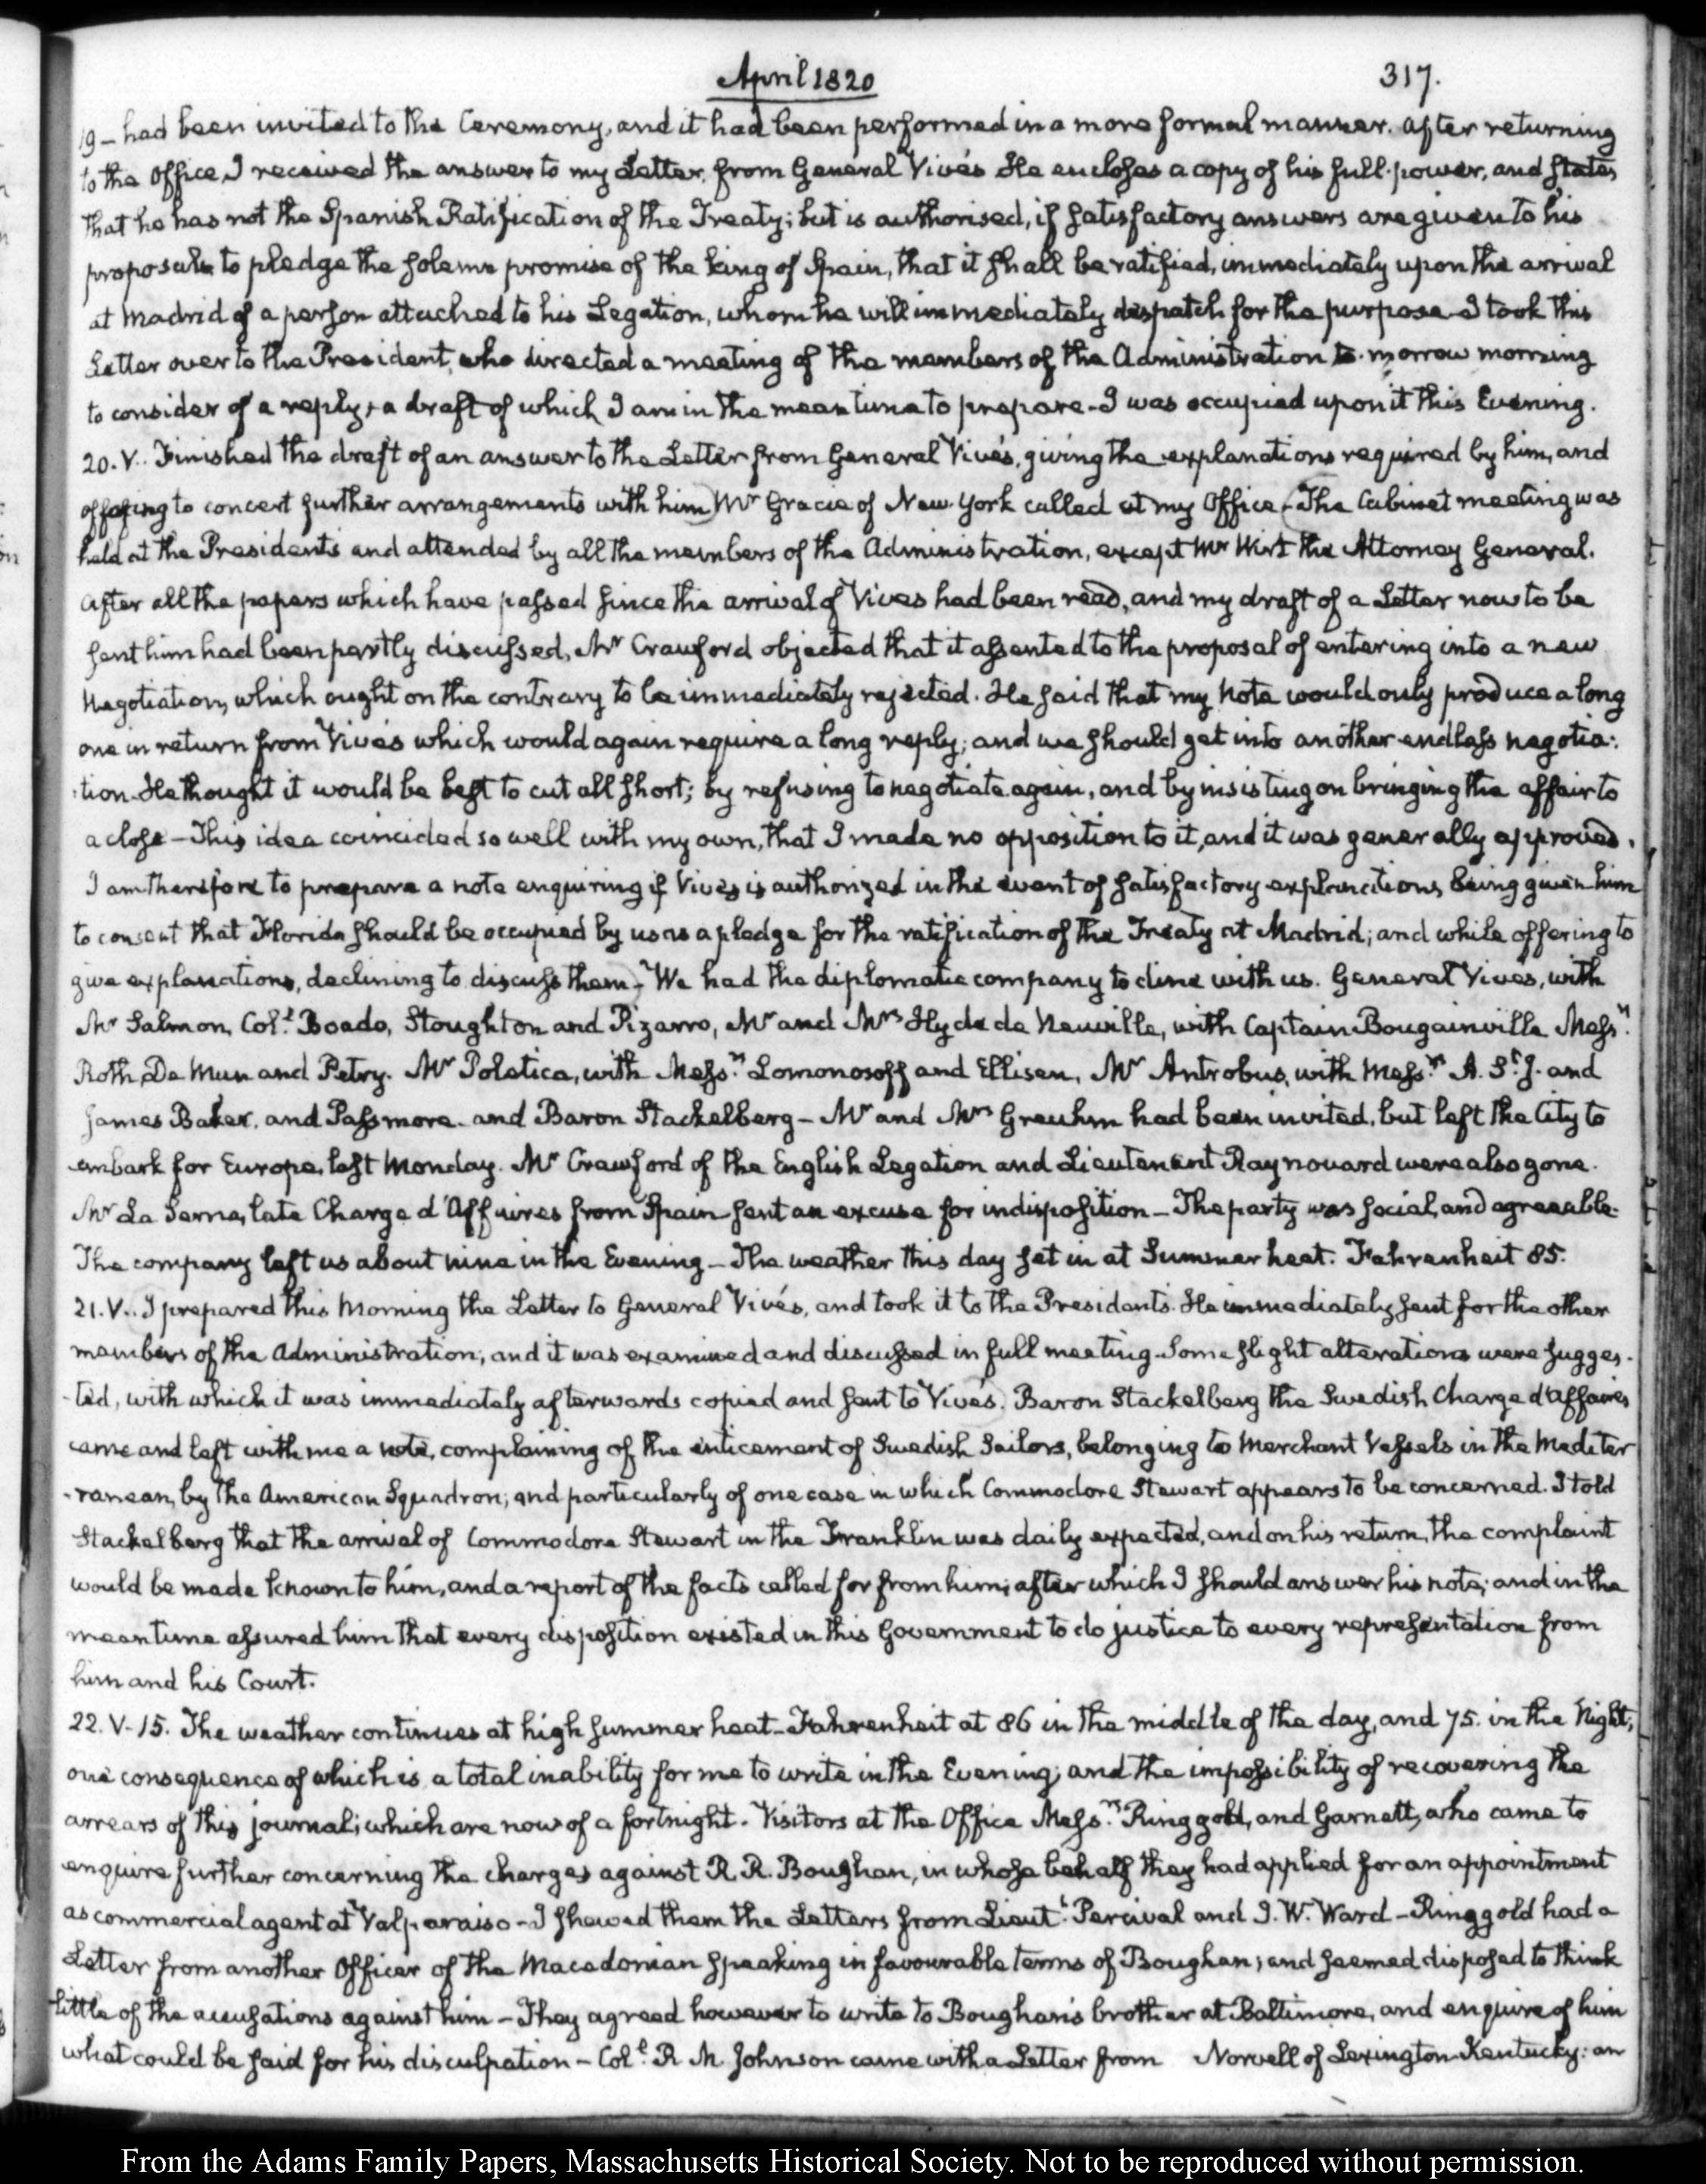 April 1820
317.
19 – had been invited to the Ceremony, and it had been performed in a more formal manner. After returning
to the Office, I received the answer to my Letter, from General Vivés He encloses a copy of his full-power, and states
that he has not the Spanish Ratification of the Treaty; but is authorised, if satisfactory answers are given to his
proposals to pledge the solemn promise of the king of Spain, that it shall be ratified, immediately upon the arrival
at Madrid of a person attached to his Legation, whom he will immediately despatch for the purpose – I took this
Letter over to the President, who directed a meeting of the members of the Administration to-morrow morning
to consider of a reply, a draft of which I am in the mean time to prepare – I was occupied upon it this Evening.
20. V. Finished the draft of an answer to the Letter from General Vivés, giving the explanations required by him, and
offering to concert further arrangements with him) Mr Gracie of New-York called at my Office – (The Cabinet meeting was
held at the Presidents and attended by all the members of the Administration, except Mr Wirt the Attorney General.
After all the papers which have passed since the arrival of Vives had been read, and my draft of a Letter now to be
sent him had been partly discussed, Mr Crawford objected that it assented to the proposal of entering into a new
Negotiation, which ought on the contrary to be immediately rejected. He said that my Note would only produce a long
one in return from Vivés which would again require a long reply; and we should get into another endless negotia:
:tion. He thought it would be best to cut all short; by refusing to negotiate again, and by insisting on bringing the affair to
a close – This idea coincided so well with my own, that I made no opposition to it, and it was generally approved.
I am therefore to prepare a note enquiring if Vivés is authorized in the event of satisfactory explanations being given him
to consent that Florida should be occupied by us as a pledge for the ratification of the Treaty at Madrid; and while offering to
give explanations, declining to discuss them) – We had the diplomatic company to dine with us. General Vives, with
Mr Salmon, Col.l Boado, Stoughton and Pizarro, Mr and Mrs Hyde de Neuville, with Captain Bougainville Mess.rs
Roth, De Mun and Petry. Mr Poletica, with Mess.rs Lomonosoff and Ellisen, Mr Antrobus, with Mess.rs A. St. J. and
James Baker, and Passmore. and Baron Stackelberg – Mr and Mrs Greuhm had been invited, but left the City to
embark for Europe, last Monday. Mr Crawford of the English Legation and Lieutenant Raynouard were also gone.
Mr La Serna, late Charge d'Affaires from Spain sent an excuse for indisposition – The party was social, and agreeable.
The company left us about nine in the Evening – The weather this day set in at Summer heat. Fahrenheit 85.
21. V. I prepared this Morning the Letter to General Vivés, and took it to the Presidents. He immediately sent for the other
members of the Administration, and it was examined and discussed in full meeting. Some slight alterations were sugges-
-ted, with which it was immediately afterwards copied and sent to Vivés). Baron Stackelberg the Swedish Charge d'Affaires
came and left with me a note, complaining of the enticement of Swedish Sailors, belonging to Merchant Vessels in the Mediter
-ranean, by the American Squadron; and particularly of one case in which Commodore Stewart appears to be concerned. I told
Stackelberg that the arrival of Commodore Stewart in the Franklin was daily expected, and on his return, the complaint
would be made known to him, and a report of the facts called for from him; after which I should answer his note; and in the
mean time assured him that every disposition existed in this Government to do justice to every representation from
him and his Court.
22. V-15. The weather continues at high summer heat – Fahrenheit at 86 in the middle of the day, and 75. in the Night;
one consequence of which is a total inability for me to write in the Evening; and the impossibility of recovering the
arrears of this journal; which are now of a fortnight. Visitors at the Office Mess.rs Ringgold, and Garnett, who came to
enquire further concerning the charges against R. R. Boughan, in whose behalf they had applied for an appointment
as commercial agent at Valparaiso – I shewed them the Letters from Lieut.t Percival and J. W. Ward – Ringgold had a
Letter from another Officer of the Macedonian speaking in favourable terms of Boughan; and seemed disposed to think
little of the accusations against him – They agreed however to write to Boughan's brother at Baltimore, and enquire of him
what could be said for his disculpation – Col.l R M Johnson came with a Letter from Norvell of Lexington Kentucky: an
From the Adams Family Papers, Massachusetts Historical Society. Not to be reproduced without permission.